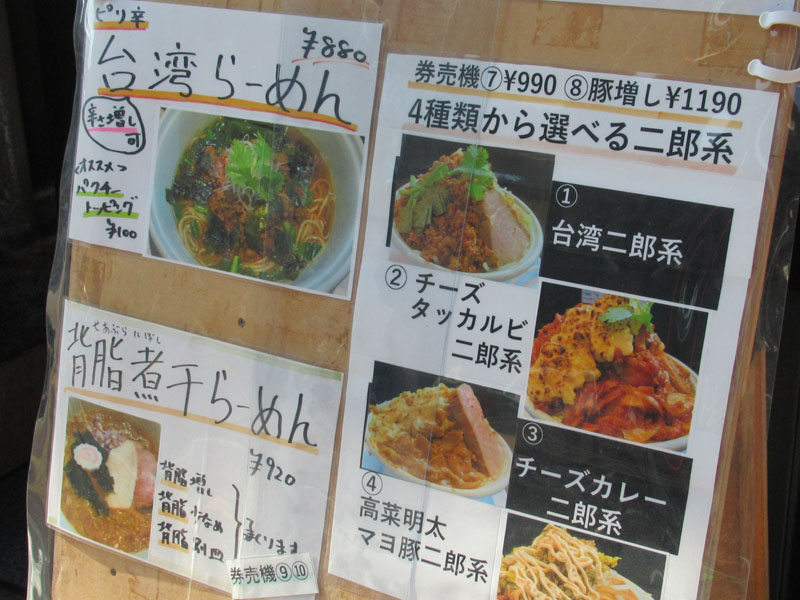 ピリ辛
¥880
台湾らーめん
辛さ増し
可
オススメ
パクチー
トッピング
¥100
せあぶらにぼし
背脂煮干らーめん
¥920
背脂増し
背脂少なめ
背脂別皿
承ります
券売機⑨⑩
券売機⑦¥990 ⑧豚増し¥1190
4種類から選べる二郎系
①
台湾二郎系
② チーズ
タッカルビ
二郎系
③
チーズカレー
二郎系
④
高菜明太
マヨ豚二郎系